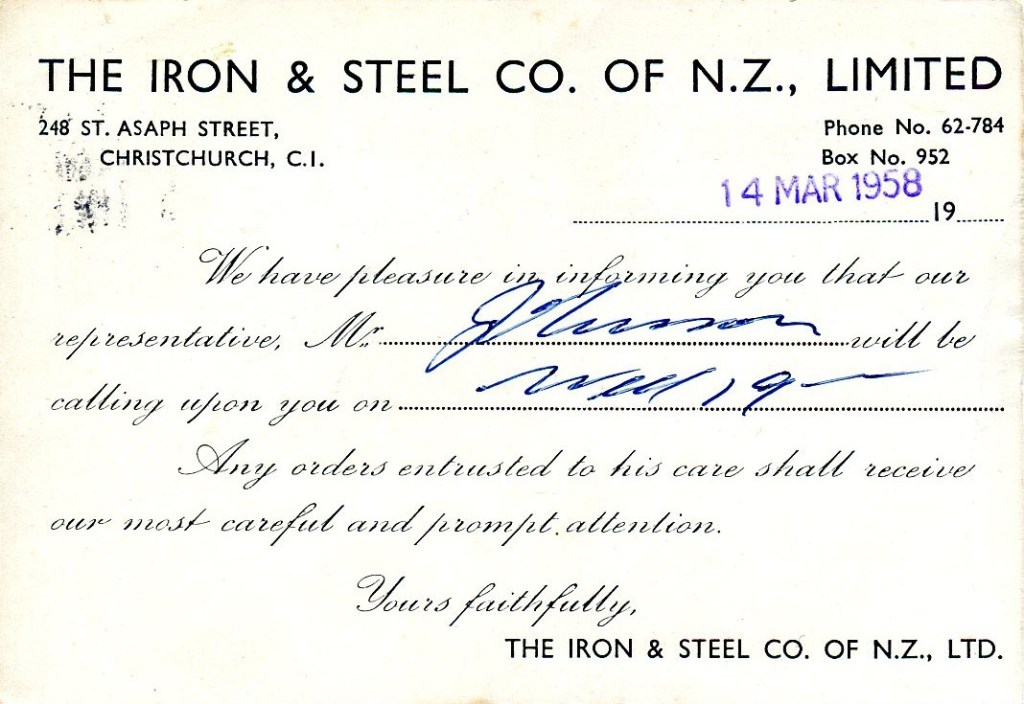 THE IRON & STEEL CO. OF N.Z., LIMITED
248 ST. ASAPH STREET,
CHRISTCHURCH, C.I.
Phone No. 62-784
Box No. 952
14 MAR 1958
19
We have pleasure in informing you that our
representative, Mr. will be
calling upon you on Wed 19
Any orders entrusted to his care shall receive
our most careful and prompt attention.
Yours faithfully,
THE IRON & STEEL CO. OF N.Z., LTD.